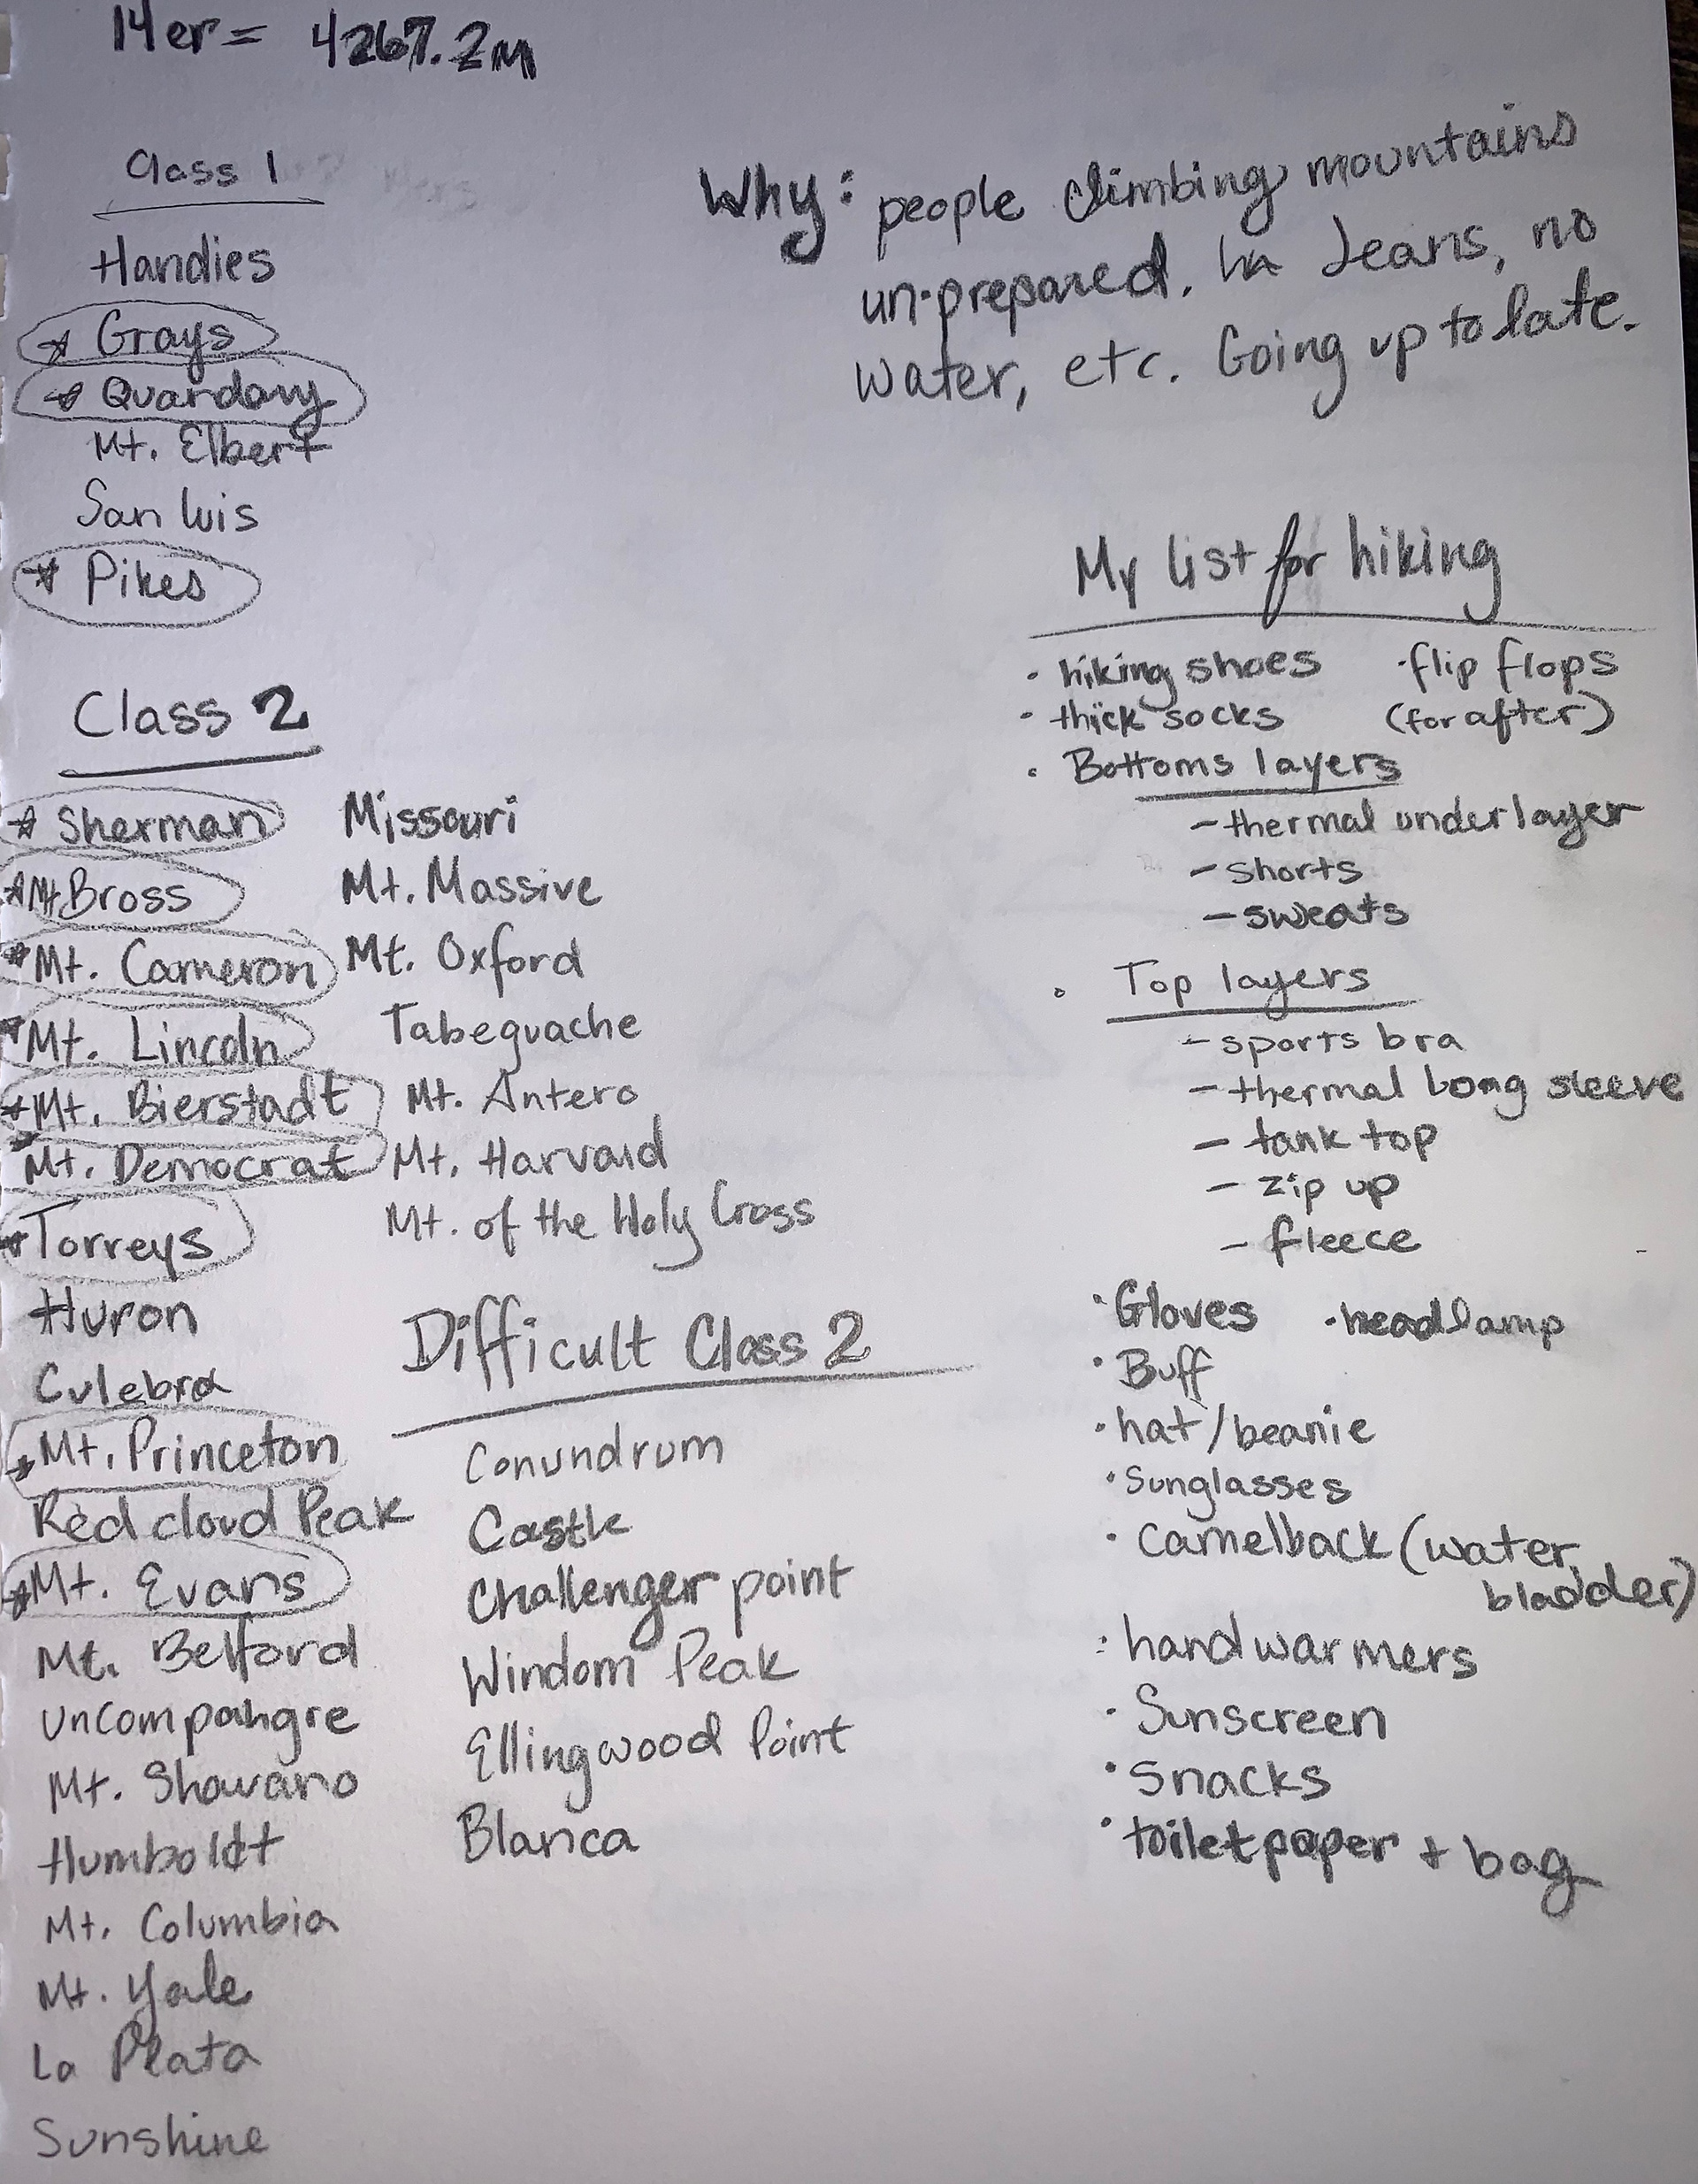 14er = 4267.2M
Class 1
Handies
Grays
Quardary
Mt. Elbert
San luis
Pikes
Why: people climbing mountains
un-prepared. in Jeans, no
water, etc. Going up to late.
Class 2
Sherman
Mt Bross
Mt. Cameron
Mt. Lincoln
Mt. Bierstadt
Mt. Democrat
Torreys
Huron
Culebra
Mt. Princeton
Red cloud Peak
Mt. Evans
Mt. Belford
Uncompahgre
Mt. Shavano
Humboldt
Mt. Columbia
Mt. Yale
La Plata
Sunshine
Missouri
Mt. Massive
Mt. Oxford
Tabeguache
Mt. Antero
Mt. Harvard
Mt. of the Holy Cross
Difficult Class 2
Conundrum
Castle
Challenger point
Windom Peak
Ellingwood Point
Blanca
My list for hiking
· hiking shoes · flip flops
· thick socks (for after)
· Bottoms layers
- thermal underlayer
- shorts
- sweats
· Top layers
- sports bra
- thermal long sleeve
- tank top
- zip up
- fleece
· Gloves · headlamp
· Buff
· hat/beanie
· Sunglasses
· Camelback (water
bladder)
· hand warmers
· Sunscreen
· Snacks
· toilet paper + bag